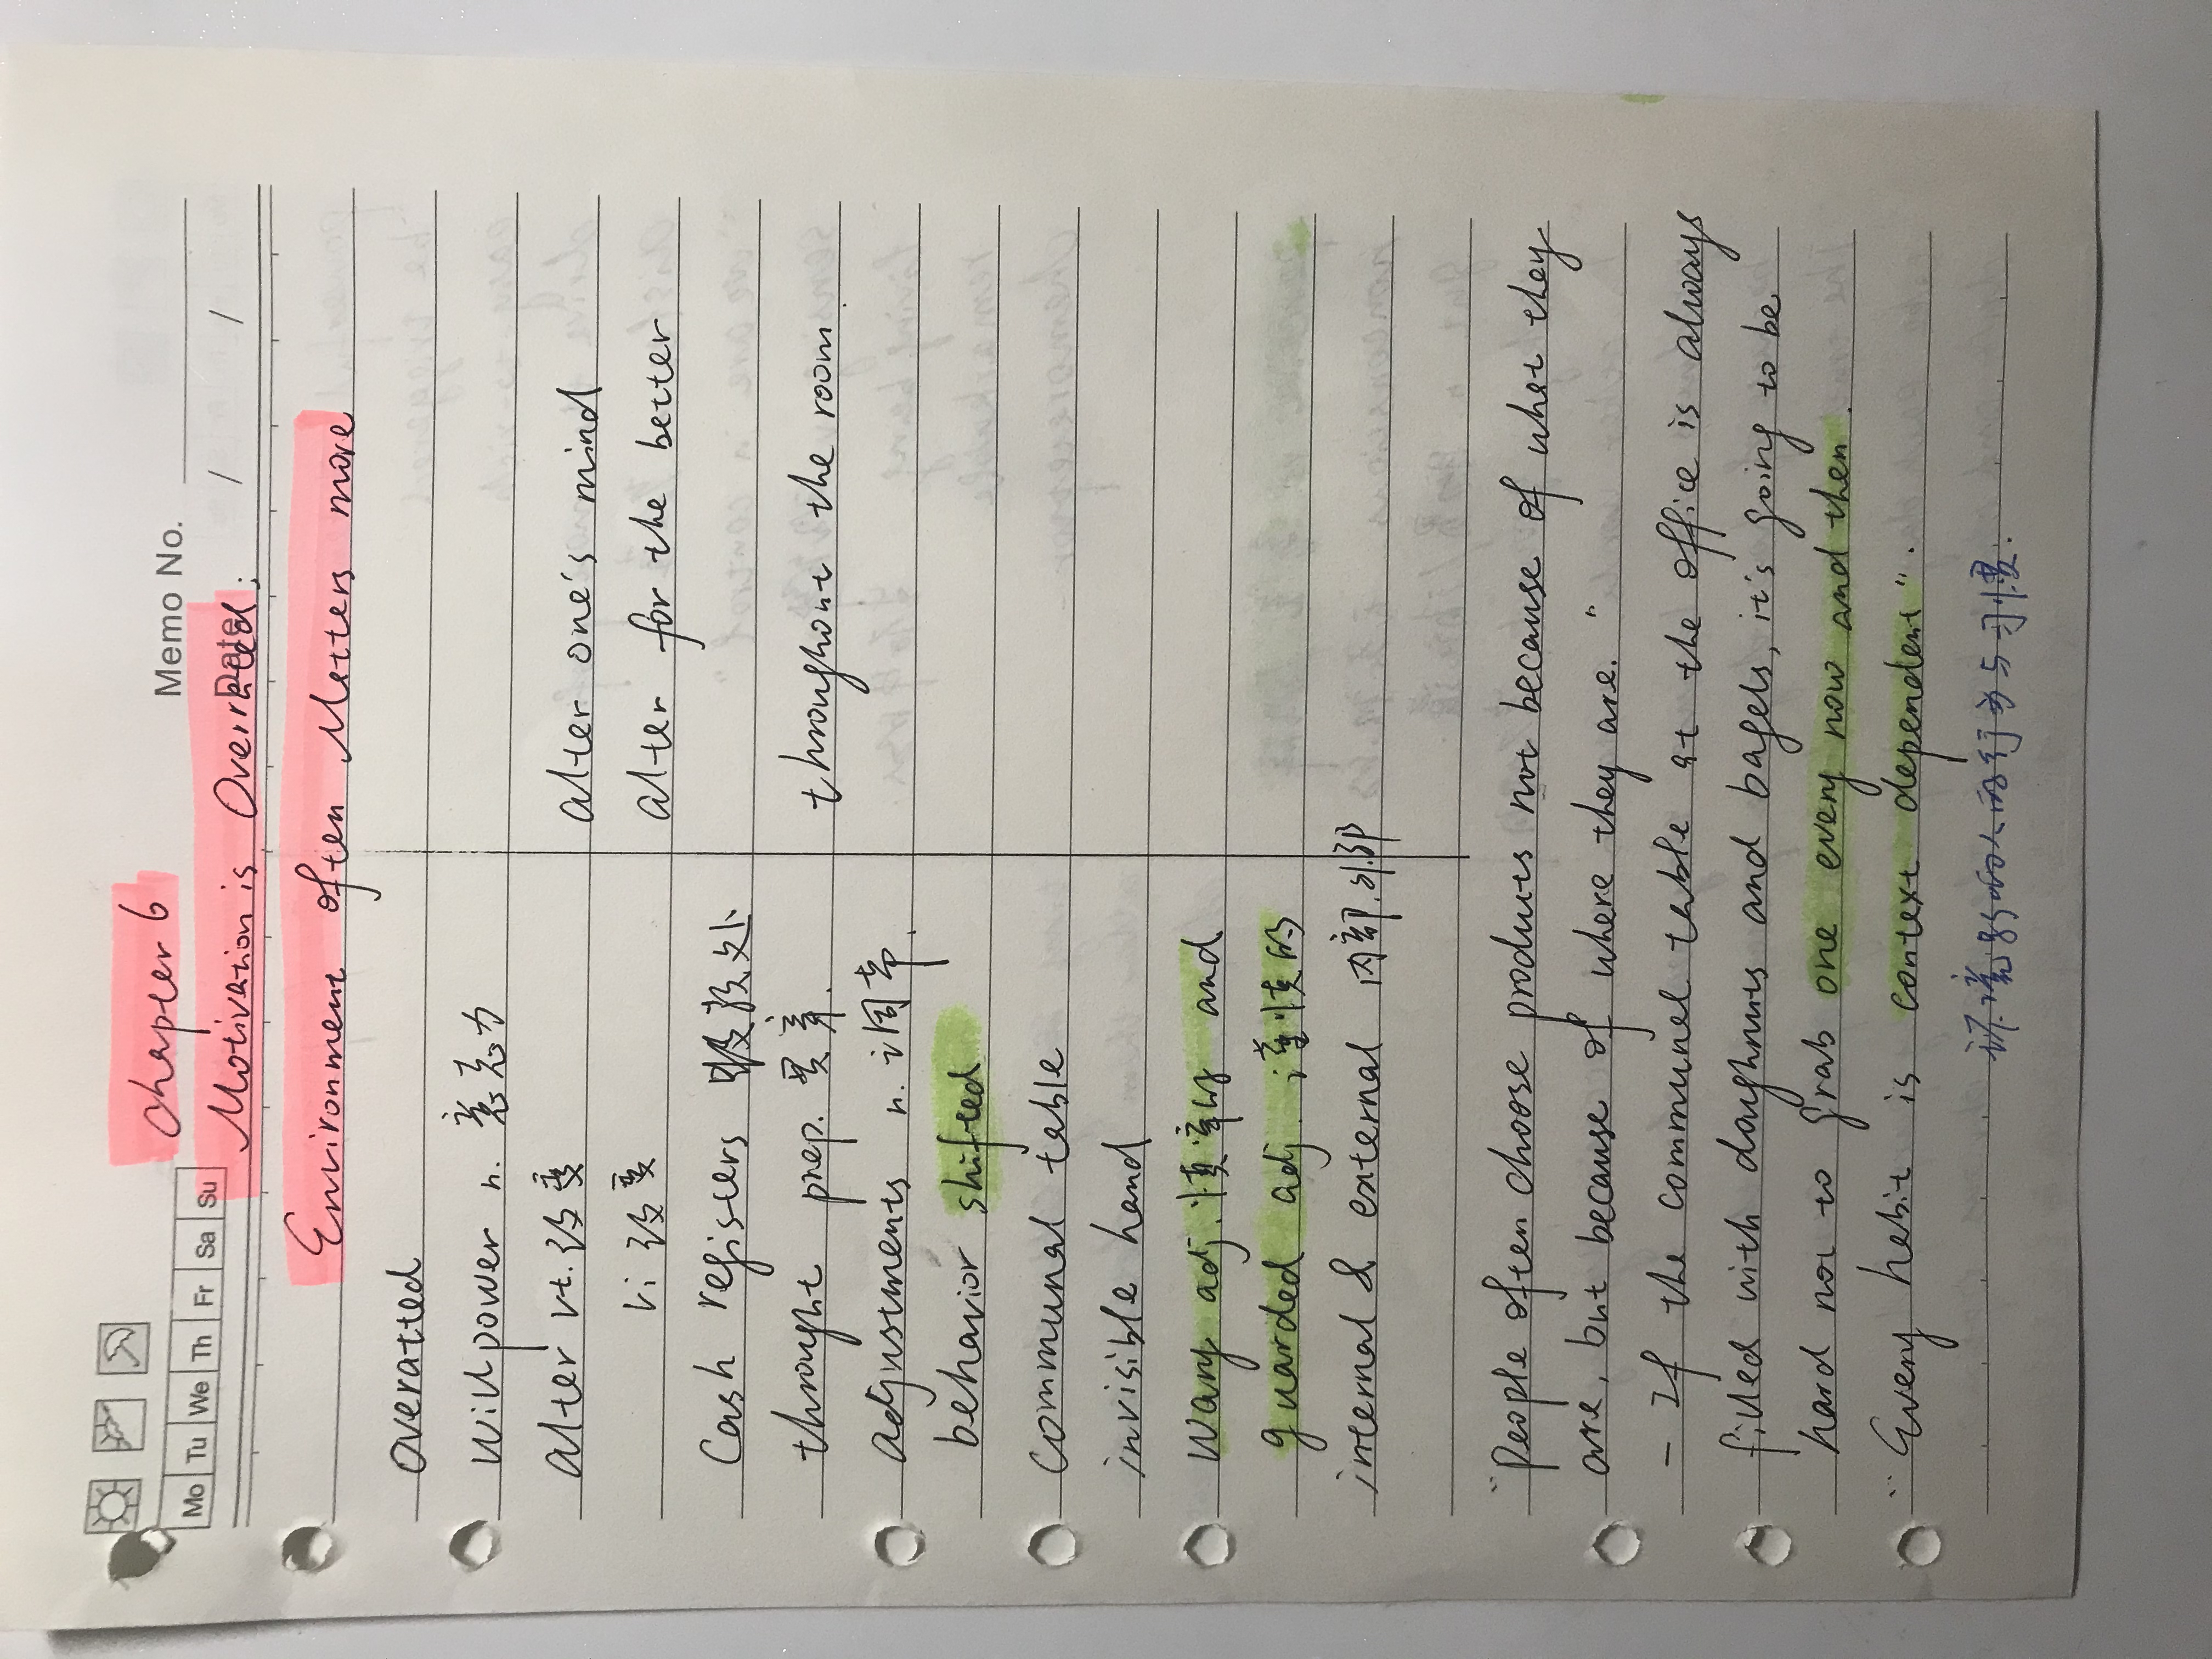 Memo No.
Mo Tu We Th Fr Sa Su
Date / /
Chapter 6
Motivation is Overrated;
Environment often Matters more
overatted
Willpower n. 意志力
alter vt. 改变 alter one's mind
vi 改变 alter for the better
Cash registers 收款处
throught prep. 贯穿. throughout the room.
adjustments n. 调节.
behavior shifted
Communal table
invisible hand
Wary adj. 慎重的 and
guarded adj. 谨慎的
internal & external 内部.外部
"People often choose products not because of what they
are, but because of where they are."
- If the communel table at the office is always
filled with doughnuts and bagels, it's going to be
hard not to grab one every now and then.
"Every habit is context dependent".
环境影响人的行为与习惯.